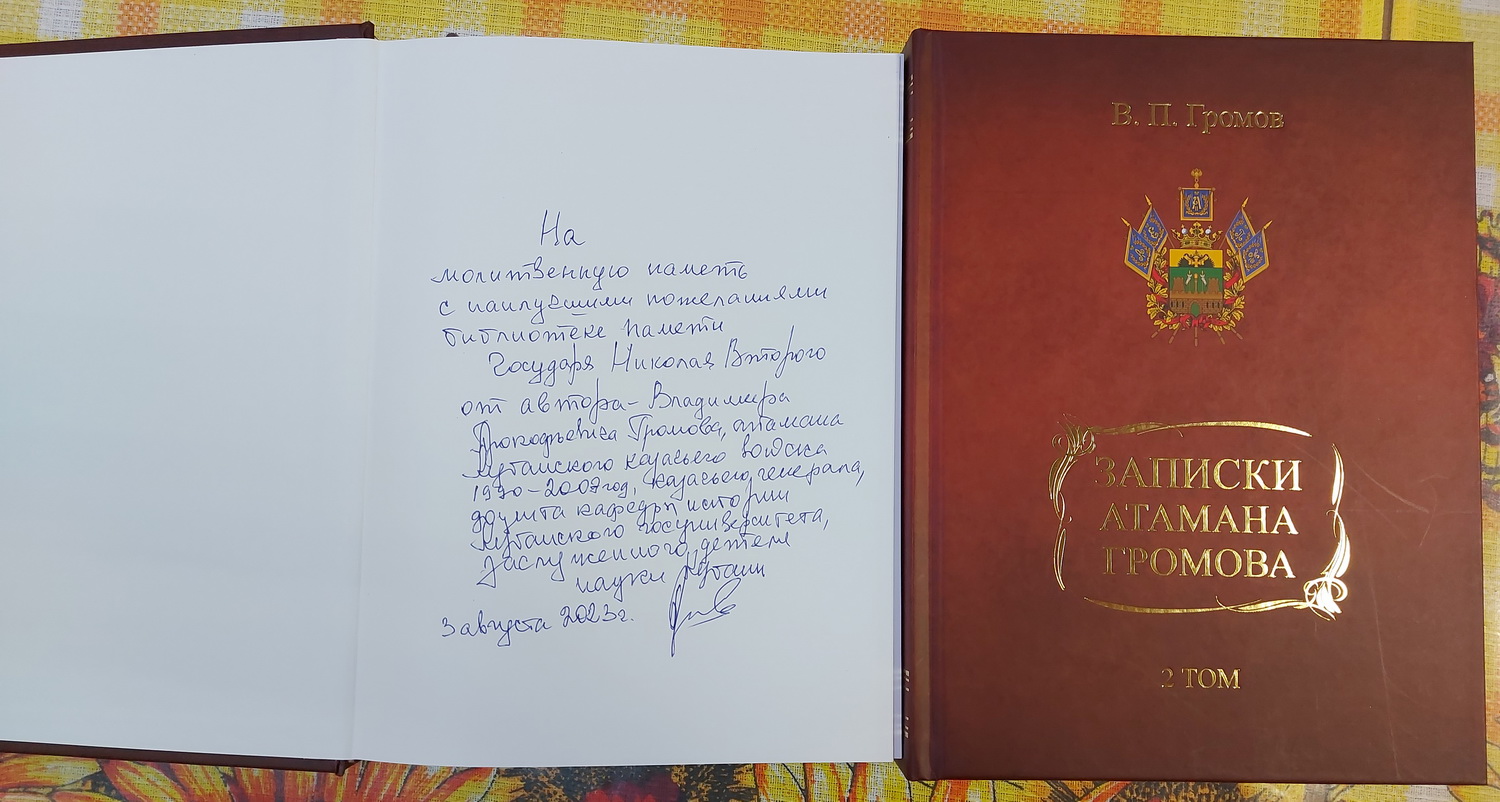 На
молитвенную память
с наилучшими пожеланиями
библиотеке памяти
Государя Николая Второго
от автора - Владимира
Прокофьевича Громова, атамана
Кубанского казачьего войска
1990-2007 год, казачьего генерала,
доцента кафедры истории
Кубанского госуниверситета,
заслуженного деятеля
науки Кубани
3 августа 2023 г.
В. П. Громов
ЗАПИСКИ
АТАМАНА
ГРОМОВА
2 ТОМ